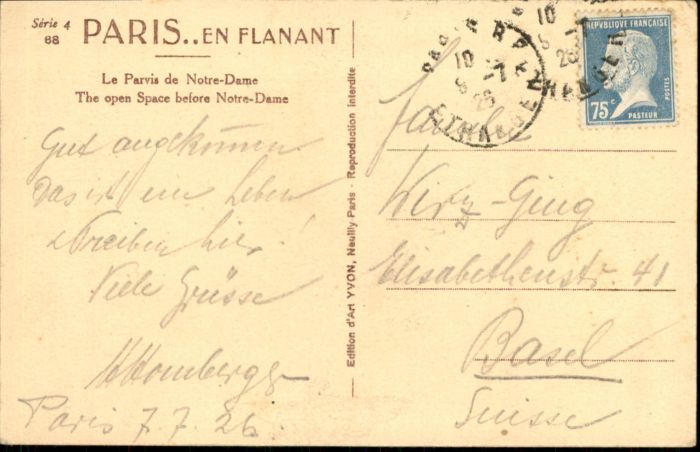 Série 4
68
PARIS.. EN FLANANT
Le Parvis de Notre-Dame
The open Space before Notre-Dame
Gut angekommen
Das ist ein Leben
u Treiben hier!
Viele Grüsse
Paris 7.7.26.
Edition d'Art YVON, Neuilly Paris - Reproduction interdite
REPVBLIQUE FRANÇAISE
75c
POSTES
PASTEUR
10
-7
26
ETRANGER
10
-7
26
ETRANGER
Familie
Wirz-Ging
Elisabethenstr. 41
Basel
Suisse